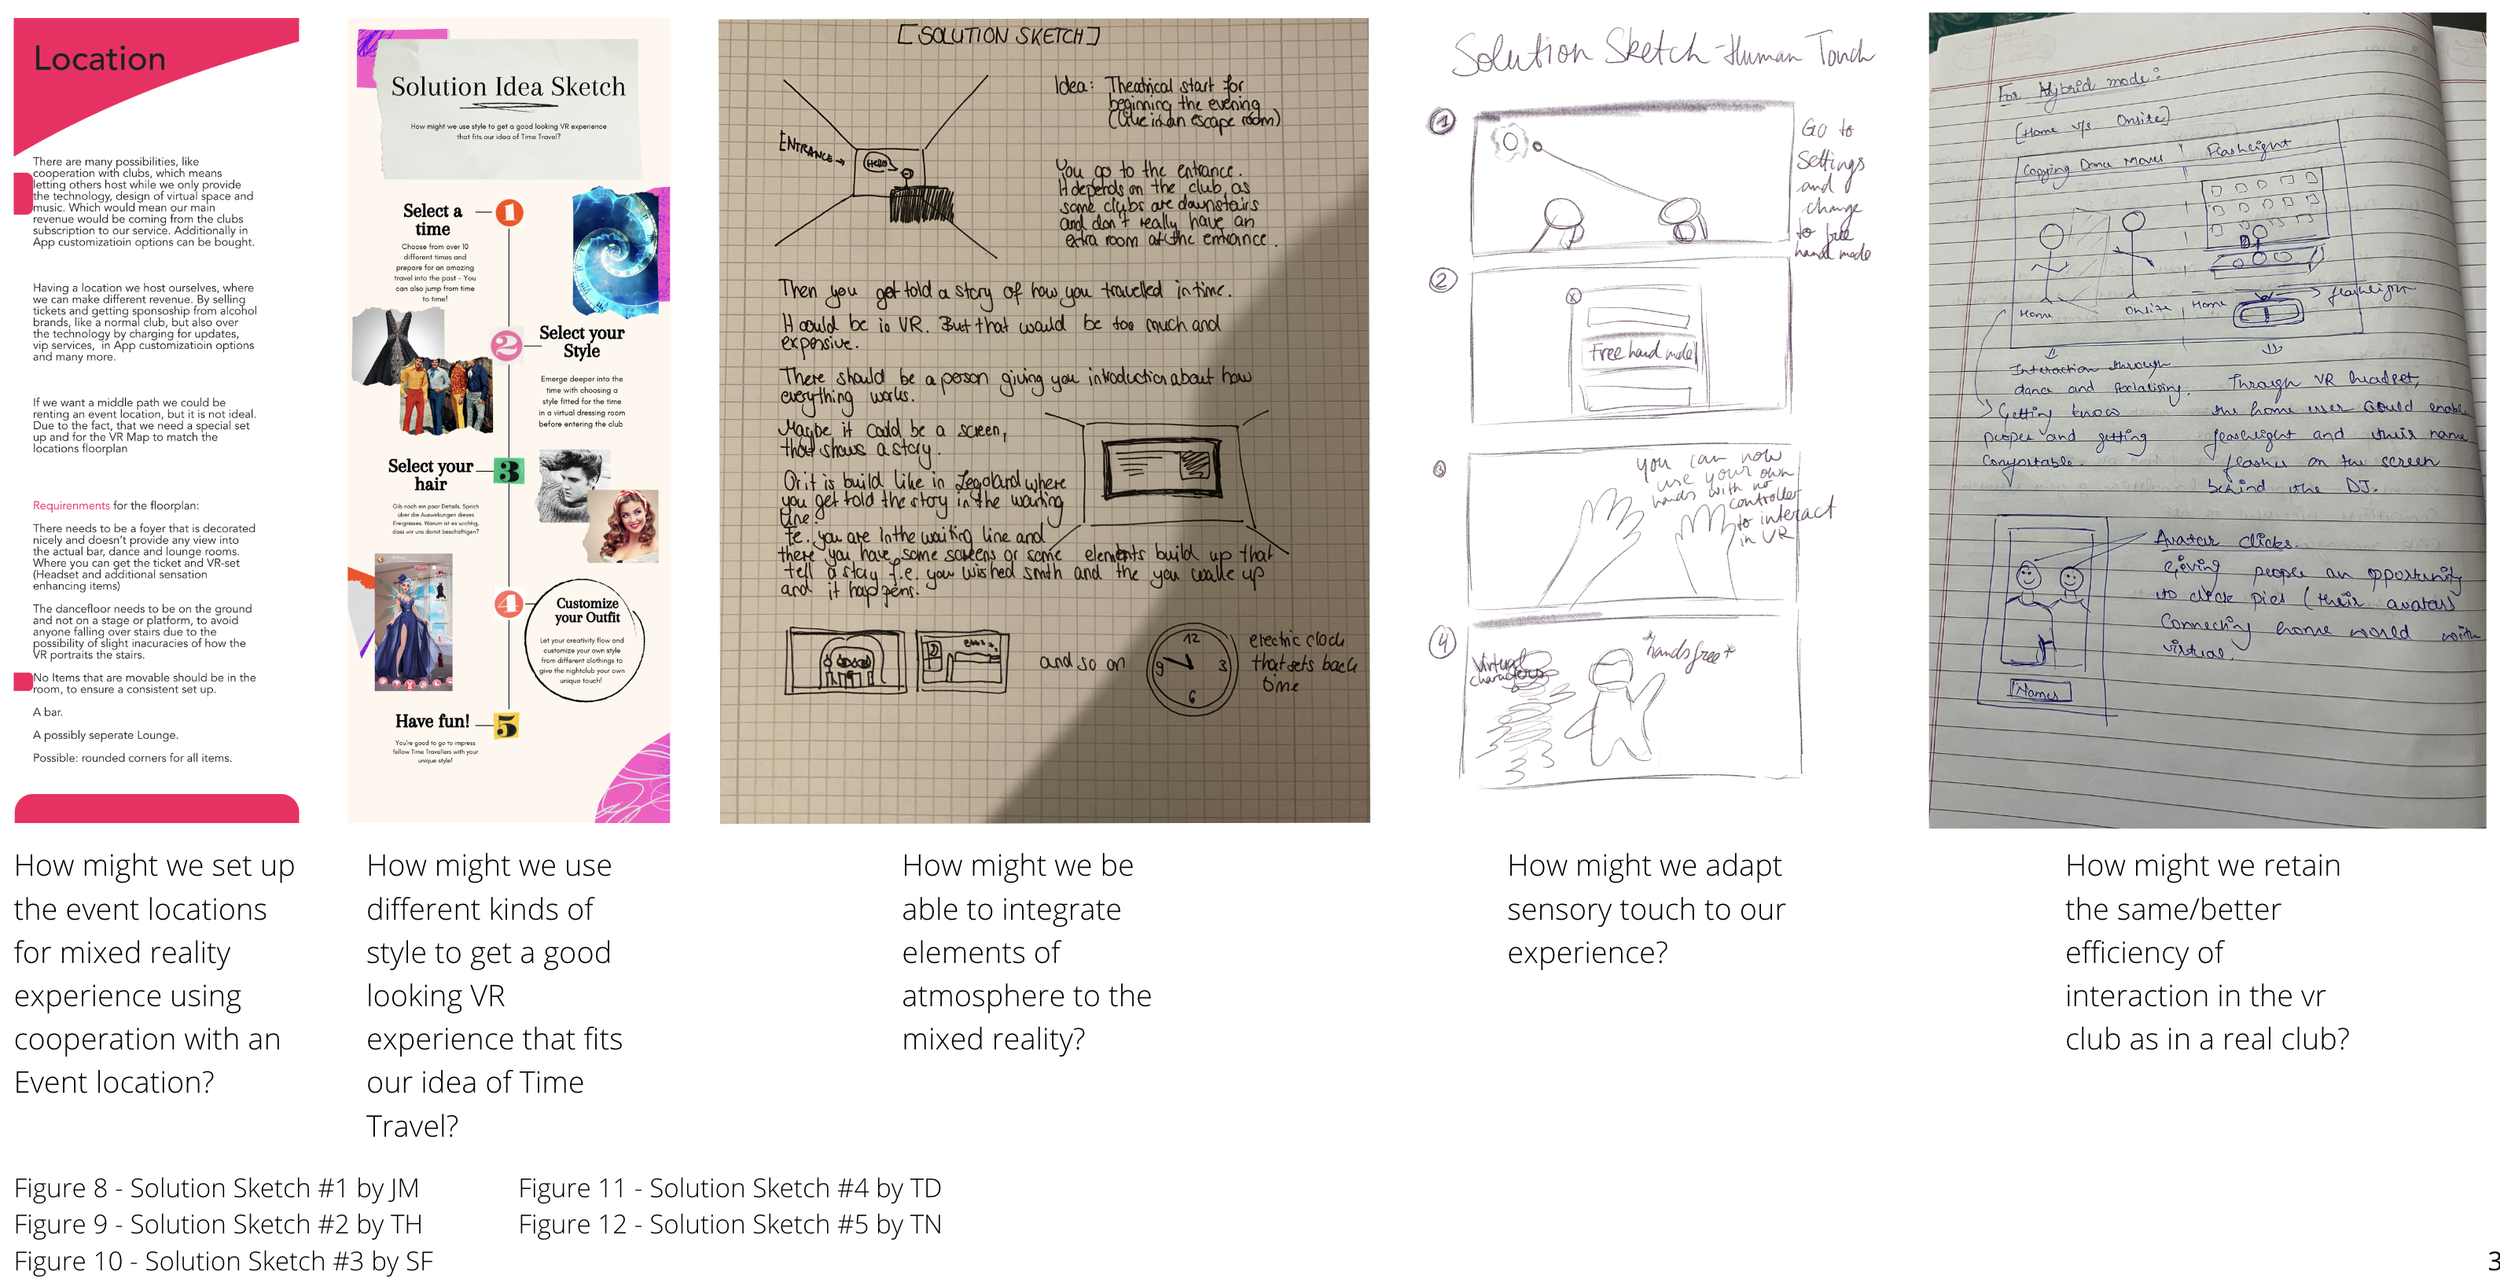 Location
There are many possibilities, like
cooperation with clubs, which means
letting others host while we only provide
the technology, design of virtual space and
music. Which would mean our main
revenue would be coming from the clubs
subscription to our service. Additionally in
App customizatioin options can be bought.
Having a location we host ourselves, where
we can make different revenue. By selling
tickets and getting sponsoship from alcohol
brands, like a normal club, but also over
the technology by charging for updates,
vip services, in App customizatioin options
and many more.
If we want a middle path we could be
renting an event location, but it is not ideal.
Due to the fact, that we need a special set
up and for the VR Map to match the
locations floorplan
Requirenments for the floorplan:
There needs to be a foyer that is decorated
nicely and doesn't provide any view into
the actual bar, dance and lounge rooms.
Where you can get the ticket and VR-set
(Headset and additional sensation
enhancing items)
The dancefloor needs to be on the ground
and not on a stage or platform, to avoid
anyone falling over stairs due to the
possibility of slight inacuracies of how the
VR portraits the stairs.
No Items that are movable should be in the
room, to ensure a consistent set up.
A bar.
A possibly seperate Lounge.
Possible: rounded corners for all items.
Solution Idea Sketch
How might we use style to get a good looking VR experience
that fits our idea of Time Travel?
Select a
time
1
Choose from over 10
different times and
prepare for an amazing
travel into the past - You
can also jump from time
to time!
2
Select your
Style
Emerge deeper into the
time with choosing a
style fitted for the time
in a virtual dressing room
before entering the club
Select your
hair
3
Gib noch ein paar Details. Sprich
über die Auswirkungen dieses
Ereignisses. Warum ist es wichtig,
dass wir uns damit beschäftigen?
4
Customize
your Outfit
Let your creativity flow and
customize your own style
from different clothings to
give the nightclub your own
unique touch!
Have fun!
5
You're good to go to impress
fellow Time Travellers with your
unique style!
[SOLUTION SKETCH]
Idea: Theatrical start for
beginning the evening
(like in an escape room)
ENTRANCE
Hello
You go to the entrance.
It depends on the club, as
some clubs are downstairs
and don't really have an
extra room at the entrance.
Then you get told a story of how you travelled in time.
It could be in VR. But that would be too much and
expensive.
There should be a person giving you introduction about how
everything works.
Maybe it could be a screen,
that shows a story.
Or it is build like in Legoland where
you get told the story in the waiting
line.
f.e. you are in the waiting line and
there you have some screens or some elements build up that
tell a story f.e. you wished smth and the you wake up
and it happens.
and so on
12
3
6
9
electric clock
that sets back
time
Solution Sketch - Human Touch
1
Go to
settings
and
change
to free
hand mode
2
x
Free hand mode
3
you can now
use your own
hands with no
controller
to interact
in VR
4
Virtual
characters
*hands free*
For Hybrid mode:
[Home v/s Onsite]
Copying Dance Moves
Flashlight
Home
Onsite
Home
flashlight
Interaction through
dance and socialising.
Getting know
people and getting
comfortable.
Through VR headset,
the home user could enable
flashlight and their name
flashes on the screen
behind the DJ.
Avatar clicks.
Giving people an opportunity
to click pics (their avatars)
Connecting home world with
virtual.
Names
How might we set up
the event locations
for mixed reality
experience using
cooperation with an
Event location?
How might we use
different kinds of
style to get a good
looking VR
experience that fits
our idea of Time
Travel?
How might we be
able to integrate
elements of
atmosphere to the
mixed reality?
How might we adapt
sensory touch to our
experience?
How might we retain
the same/better
efficiency of
interaction in the vr
club as in a real club?
Figure 8 - Solution Sketch #1 by JM
Figure 9 - Solution Sketch #2 by TH
Figure 10 - Solution Sketch #3 by SF
Figure 11 - Solution Sketch #4 by TD
Figure 12 - Solution Sketch #5 by TN
3